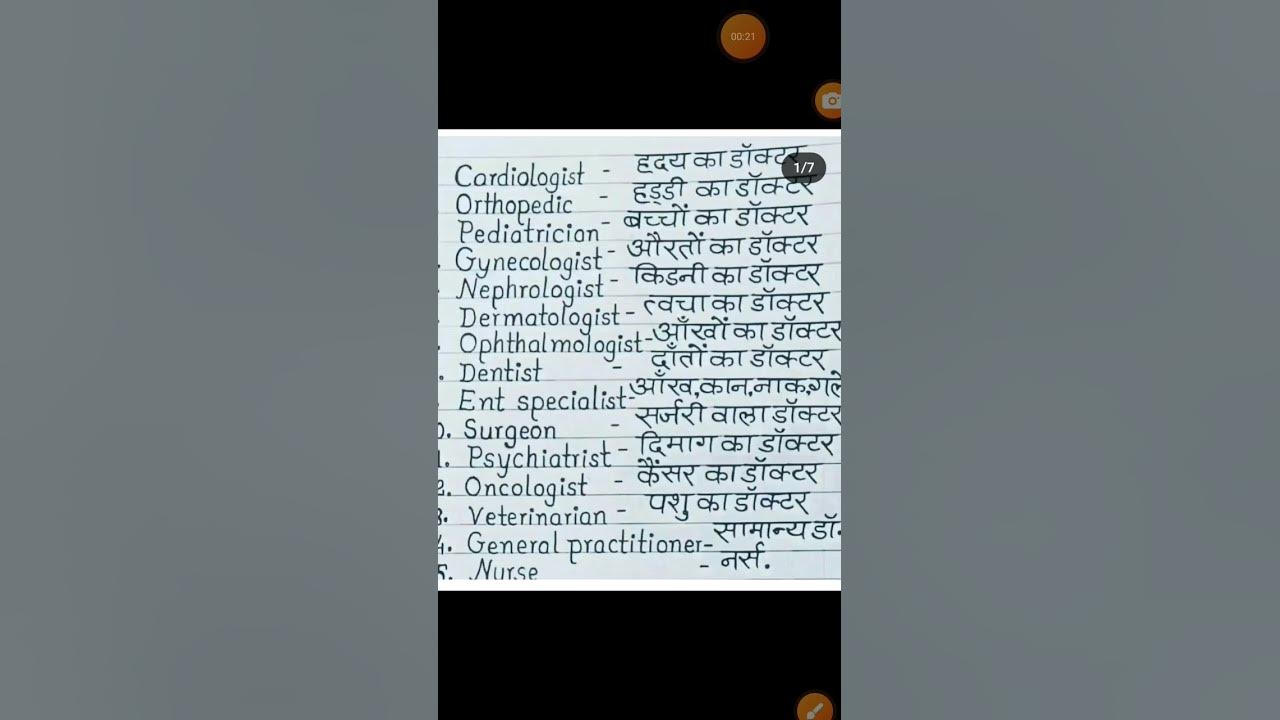 00:21
1/7
Cardiologist - हृदय का डॉक्टर
Orthopedic - हड्डी का डॉक्टर
Pediatrician - बच्चों का डॉक्टर
. Gynecologist - औरतों का डॉक्टर
. Nephrologist - किडनी का डॉक्टर
. Dermatologist - त्वचा का डॉक्टर
. Ophthalmologist - आँखों का डॉक्टर
. Dentist - दाँतों का डॉक्टर
. Ent specialist - आँख,कान,नाक,गले
0. Surgeon - सर्जरी वाला डॉक्टर
1. Psychiatrist - दिमाग का डॉक्टर
2. Oncologist - कैंसर का डॉक्टर
3. Veterinarian - पशु का डॉक्टर
4. General practitioner - सामान्य डॉ.
5. Nurse - नर्स.